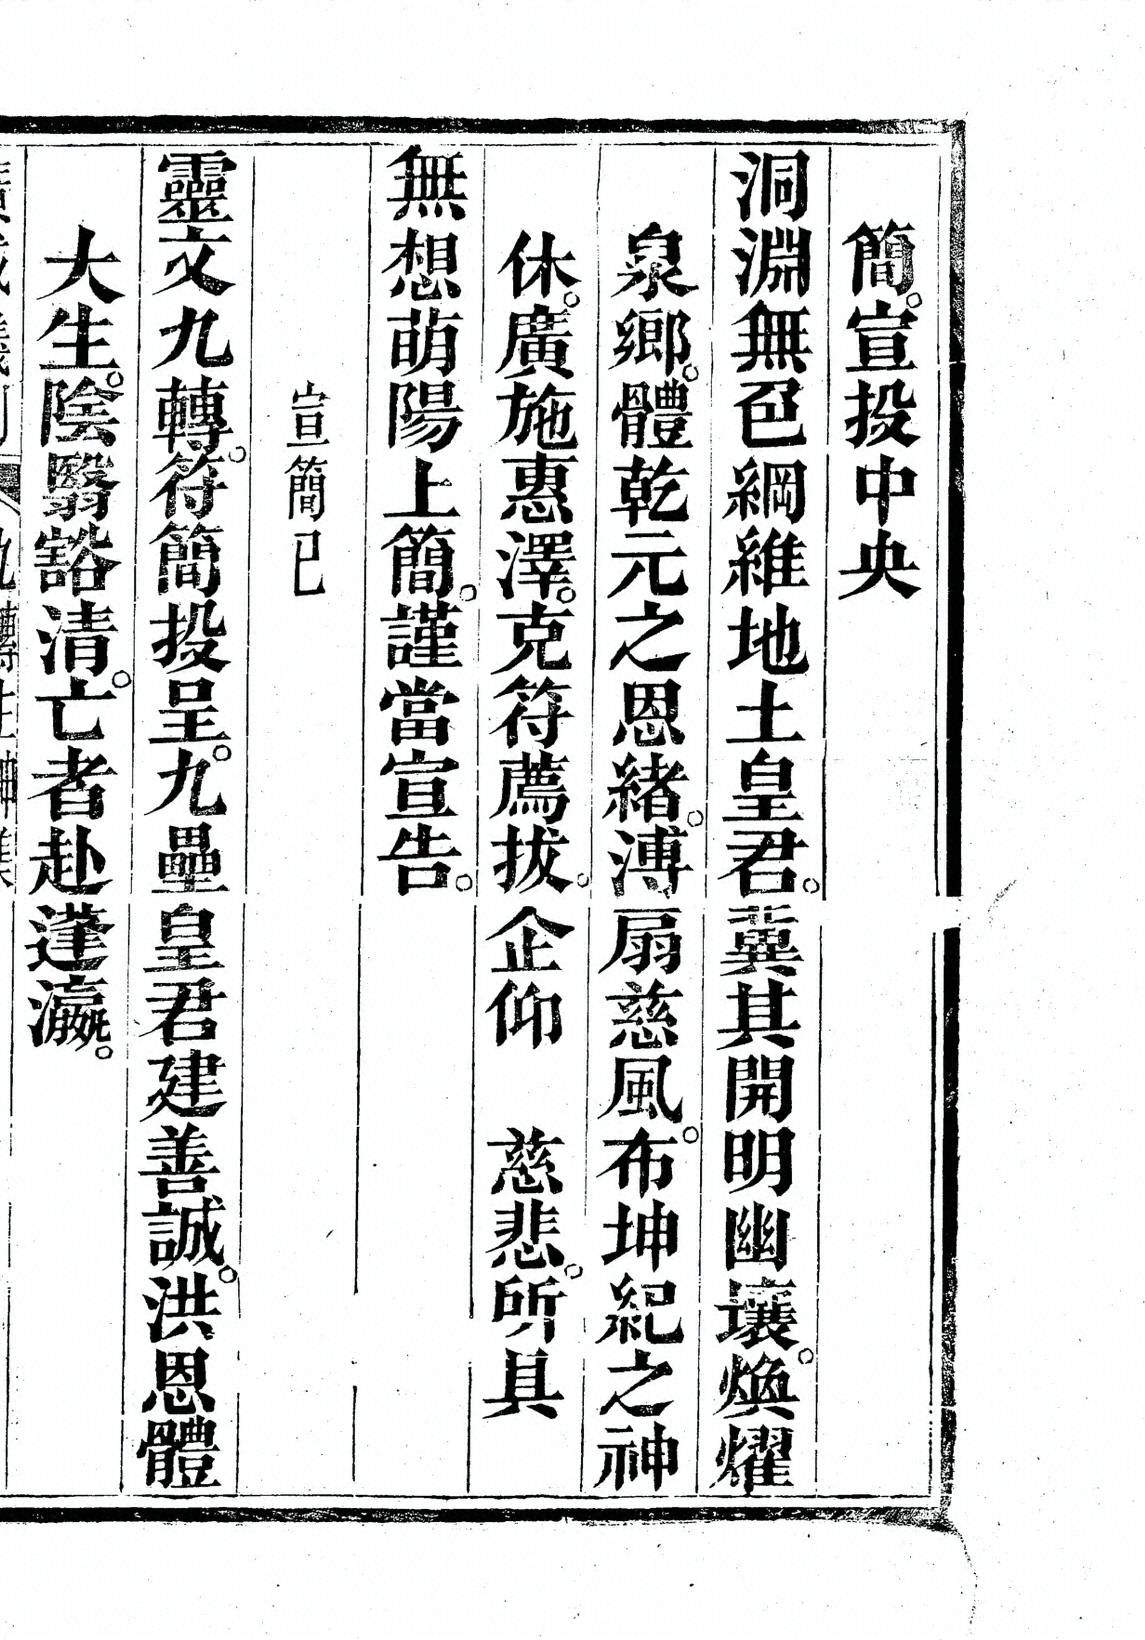 簡。宣投中央
洞淵無色綱維地土皇君。冀其開明幽壤。煥耀
泉鄉。體乾元之恩緒。溥扇慈風。布坤紀之神
休。廣施惠澤。克符薦拔。企仰　慈悲。所具
無想萌陽上簡。謹當宣告。
宣簡已
靈文九轉。符簡投呈。九壘皇君建善誠。洪恩體
大生。陰翳豁清。亡者赴蓬瀛。